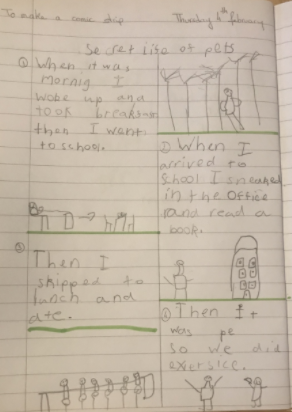 To make a comic strip
Thursday 4th February
Secret life of pets
① When it was
mornig I
woke up and
took breakfast
then I want
to school.
② When I
arrived to
school I sneaked
in the office
and read a
book.
③
Then I
skipped to
lanch and
ate.
④ Then It
was pe
so we did
exersice.